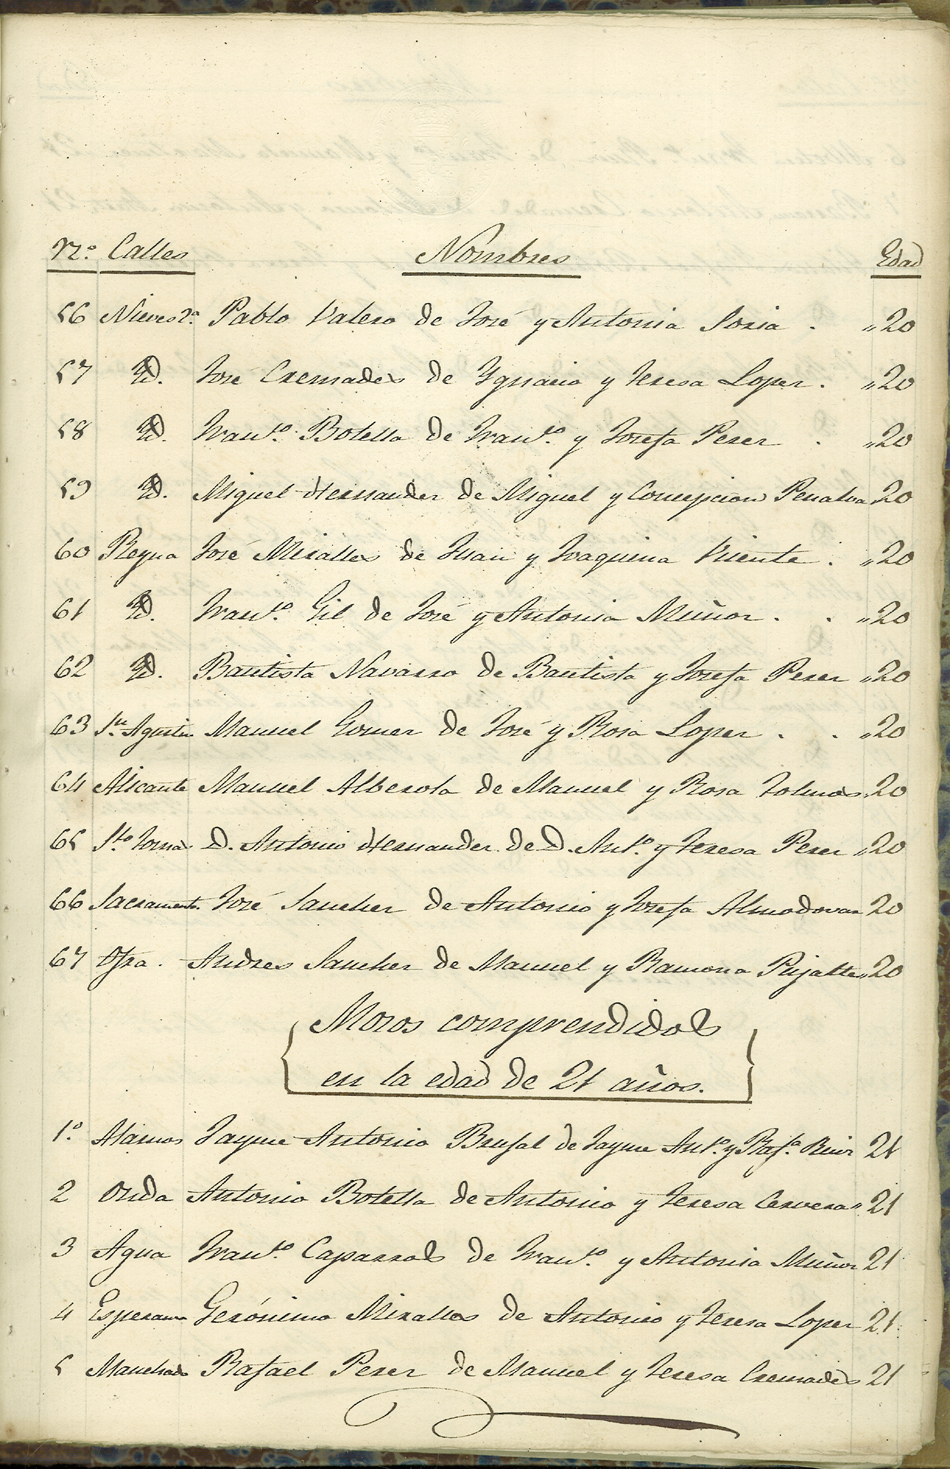 N.º Calles Nombres Edad
56 Nieves 2ª Pablo Valero de José y Antonia Soria . „20
57 Yd. José Cremades de Ygnacio y Teresa Lopez . „20
58 Yd. Franco. Botella de Franco. y Josefa Perez . „20
59 Yd. Miguel Hernandez de Miguel y Concepcion Penalva 20
60 Reyna José Miralles de Juan y Joaquina Vicente . „20
61 Yd. Franco. Gil de José y Antonia Muñoz . . „20
62 Yd. Bautista Navarro de Bautista y Josefa Perez „20
63 Sn. Agustin Manuel Gomez de José y Rosa Lopez . . „20
64 Alicante Manuel Alberola de Manuel y Rosa 20
65 Sto. Tomas D. Antonio Hernandez de D. Anto. y Teresa Perez „20
66 Sacramento José Sanchez de Antonio y Josefa Almodovar 20
67 Ofra. Andres Sanchez de Manuel y Ramona Pujalte „20
Mozos comprendidos
en la edad de 21 años.
1.º Alamos Jayme Antonio Brufal de Jayme Anto. y Rafa. Ruiz 21
2 Onda Antonio Botella de Antonio y Teresa Cerveras 21
3 Agua Franco. Caparros de Franco. y Antonia Muñoz 21
4 Esperanza Gerónimo Miralles de Antonio y Teresa Lopez 21
5 Manchado Rafael Perez de Manuel y Teresa Cremades 21